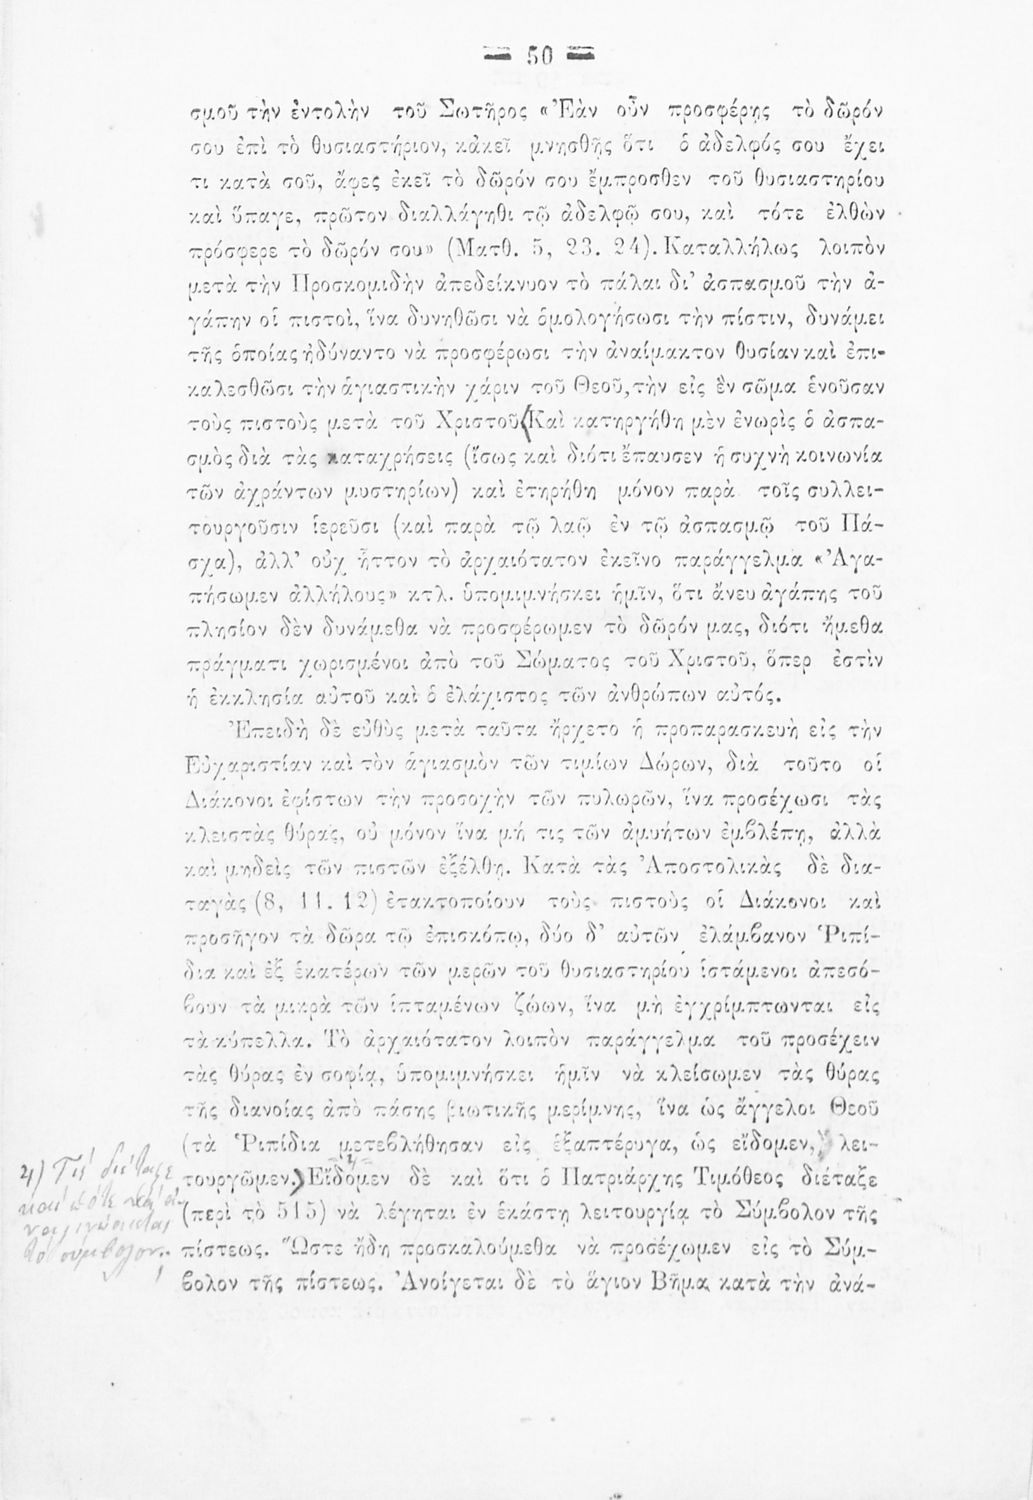 50
σμοῦ τὴν ἐντολὴν τοῦ Σωτῆρος «Ἐὰν οὖν προσφέρῃς τὸ δῶρόν
σου ἐπὶ τὸ θυσιαστήριον, κἀκεῖ μνησθῇς ὅτι ὁ ἀδελφός σου ἔχει
τι κατὰ σοῦ, ἄφες ἐκεῖ τὸ δῶρόν σου ἔμπροσθεν τοῦ θυσιαστηρίου
καὶ ὕπαγε, πρῶτον διαλλάγηθι τῷ ἀδελφῷ σου, καὶ τότε ἐλθὼν
πρόσφερε τὸ δῶρόν σου» (Ματθ. 5, 23. 24). Καταλλήλως λοιπὸν
μετὰ τὴν Προσκομιδὴν ἀπεδείκνυον τὸ πάλαι δι' ἀσπασμοῦ τὴν ἀ-
γάπην οἱ πιστοὶ, ἵνα δυνηθῶσι νὰ ὁμολογήσωσι τὴν πίστιν, δυνάμει
τῆς ὁποίας ἠδύναντο νὰ προσφέρωσι τὴν ἀναίμακτον θυσίαν καὶ ἐπι-
καλεσθῶσι τὴν ἁγιαστικὴν χάριν τοῦ Θεοῦ, τὴν εἰς ἓν σῶμα ἑνοῦσαν
τοὺς πιστοὺς μετὰ τοῦ Χριστοῦ. (Καὶ κατηργήθη μὲν ἐνωρὶς ὁ ἀσπα-
σμὸς διὰ τὰς καταχρήσεις (ἴσως καὶ διότι ἔπαυσεν ἡ συχνὴ κοινωνία
τῶν ἀχράντων μυστηρίων) καὶ ἐτηρήθη μόνον παρὰ τοῖς συλλει-
τουργοῦσιν ἱερεῦσι (καὶ παρὰ τῷ λαῷ ἐν τῷ ἀσπασμῷ τοῦ Πά-
σχα), ἀλλ' οὐχ ἧττον τὸ ἀρχαιότατον ἐκεῖνο παράγγελμα «Ἀγα-
πήσωμεν ἀλλήλους» κτλ. ὑπομιμνήσκει ἡμῖν, ὅτι ἄνευ ἀγάπης τοῦ
πλησίον δὲν δυνάμεθα νὰ προσφέρωμεν τὸ δῶρόν μας, διότι ἤμεθα
πράγματι χωρισμένοι ἀπὸ τοῦ Σώματος τοῦ Χριστοῦ, ὅπερ ἐστὶν
ἡ ἐκκλησία αὐτοῦ καὶ ὁ ἐλάχιστος τῶν ἀνθρώπων αὐτός.
Ἐπειδὴ δὲ εὐθὺς μετὰ ταῦτα ἤρχετο ἡ προπαρασκευὴ εἰς τὴν
Εὐχαριστίαν καὶ τὸν ἁγιασμὸν τῶν τιμίων Δώρων, διὰ τοῦτο οἱ
Διάκονοι ἐφίστων τὴν προσοχὴν τῶν πυλωρῶν, ἵνα προσέχωσι τὰς
κλειστὰς θύρας, οὐ μόνον ἵνα μή τις τῶν ἀμυήτων ἐμβλέπῃ, ἀλλὰ
καὶ μηδεὶς τῶν πιστῶν ἐξέλθῃ. Κατὰ τὰς Ἀποστολικὰς δὲ δια-
ταγὰς (8, 11. 12) ἐτακτοποίουν τοὺς πιστοὺς οἱ Διάκονοι καὶ
προσῆγον τὰ δῶρα τῷ ἐπισκόπῳ, δύο δ' αὐτῶν ἐλάμβανον Ῥιπί-
δια καὶ ἐξ ἑκατέρων τῶν μερῶν τοῦ θυσιαστηρίου ἱστάμενοι ἀπεσό-
βουν τὰ μικρὰ τῶν ἱπταμένων ζώων, ἵνα μὴ ἐγχρίμπτωνται εἰς
τὰ κύπελλα. Τὸ ἀρχαιότατον λοιπὸν παράγγελμα τοῦ προσέχειν
τὰς θύρας ἐν σοφίᾳ, ὑπομιμνήσκει ἡμῖν νὰ κλείσωμεν τὰς θύρας
τῆς διανοίας ἀπὸ πάσης βιωτικῆς μερίμνης, ἵνα ὡς ἄγγελοι Θεοῦ
(τὰ Ῥιπίδια μετεβλήθησαν εἰς ἑξαπτέρυγα, ὡς εἴδομεν,) λει-
τουργῶμεν.) Εἴδομεν δὲ καὶ ὅτι ὁ Πατριάρχης Τιμόθεος διέταξε
(περὶ τὸ 515) νὰ λέγηται ἐν ἑκάστῃ λειτουργίᾳ τὸ Σύμβολον τῆς
πίστεως. Ὥστε ἤδη προσκαλούμεθα νὰ προσέχωμεν εἰς τὸ Σύμ-
βολον τῆς πίστεως. Ἀνοίγεται δὲ τὸ ἅγιον Βῆμα κατὰ τὴν ἀνά-
4) Τίς διέταξε
καί πότε νά ἀ-
ναγινώσκεται
τό σύμβολον.